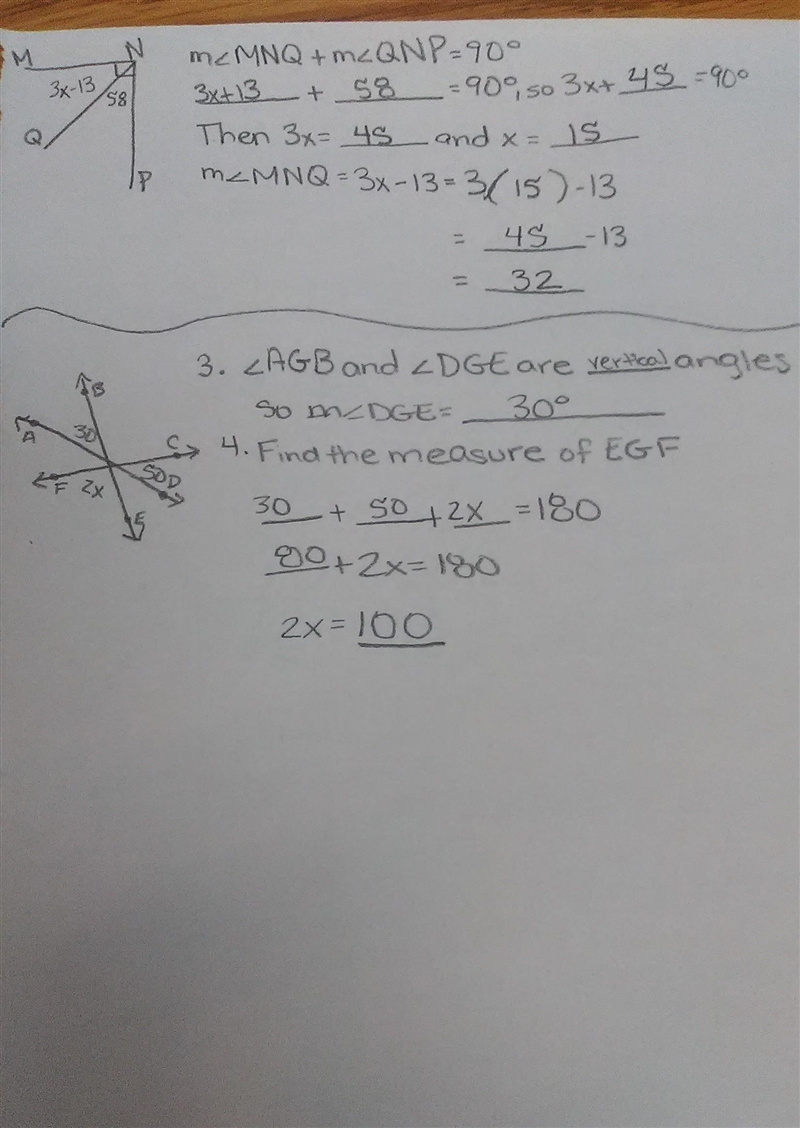 M N m∠MNQ + m∠QNP = 90°
3x-13 58 3x+13 + 58 = 90°, so 3x + 45 = 90°
Q Then 3x = 45 and x = 15
P m∠MNQ = 3x - 13 = 3(15) - 13
= 45 - 13
= 32
3. ∠AGB and ∠DGE are vertical angles
B
so m∠DGE = 30°
A 30 C
4. Find the measure of EGF
F 2x 50 D
E
30 + 50 + 2x = 180
80 + 2x = 180
2x = 100